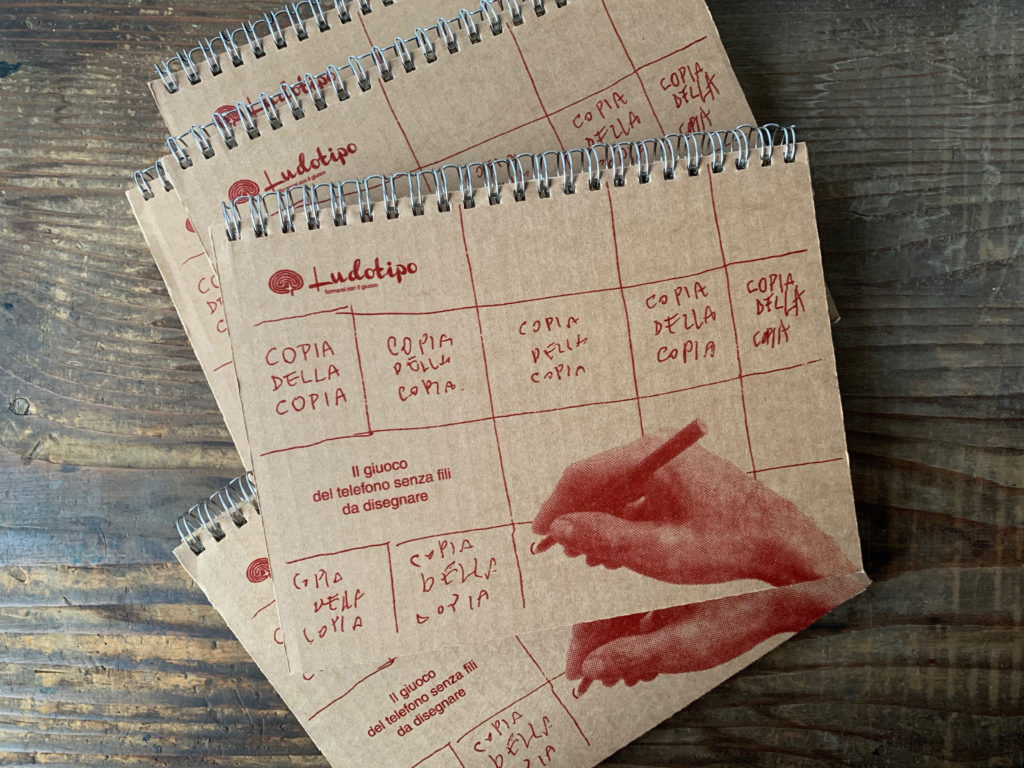 Ludotipo
COPIA
DELLA
COPIA
COPIA
DELLA
Ludotipo
Ludotipo
formarsi con il giuoco
COPIA
DELLA
COPIA
COPIA
DELLA
COPIA
COPIA
DELLA
COPIA
COPIA
DELLA
COPIA
COPIA
DELLA
COPIA
Il giuoco
del telefono senza fili
da disegnare
COPIA
DELLA
COPIA
COPIA
DELLA
COPIA
Il giuoco
del telefono senza fili
da disegnare
COPIA
DELLA